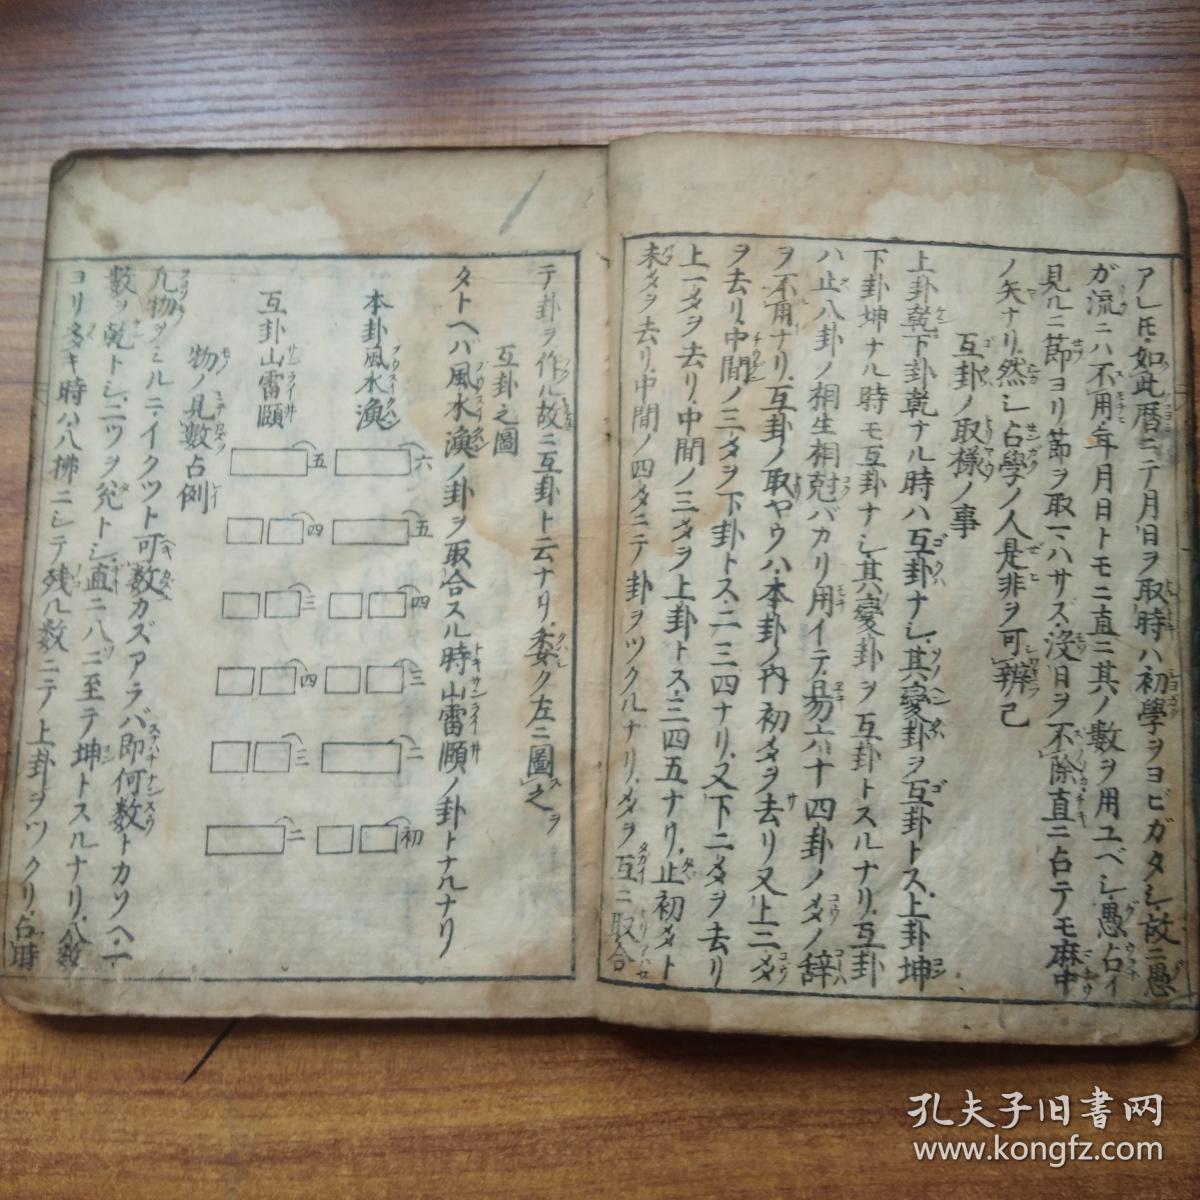 アレ𪜈如此暦ニテ月日ヲ取時ハ初學ヲヨビガタシ故ニ愚
ガ流ニハ不用年月日トモニ直ニ其ノ數ヲ用ユベシ愚占イ
見ルニ節ヨリ節ヲ取マハサズ没日ヲ不除直ニ占テモ麻中
ノ矢ナリ然シ占學ノ人是非ヲ可辨己
互卦ノ取様ノ事
上卦乾下卦乾ナル時ハ互卦ナシ其變卦ヲ互卦トス上卦坤
下卦坤ナル時モ互卦ナシ其變卦ヲ互卦トスルナリ互卦
ハ止八卦ノ相生相尅バカリ用イテ易六十四卦ノ爻ノ辞
ヲ不用ナリ互卦ノ取ヤウハ本卦ノ内初爻ヲ去リ又上二爻
ヲ去リ中間ノ三爻ヲ下卦トス二三四ナリ又下二爻ヲ去リ
上一爻ヲ去リ中間ノ三爻ヲ上卦トス三四五ナリ止初爻ト
末爻ヲ去リ中間ノ四爻ニテ卦ヲツクルナリ爻ヲ互ニ取合
テ卦ヲ作ル故ニ互卦ト云ナリ委ク左ニ圖之
互卦之圖
タトヘバ風水渙ノ卦ヲ取合スル時山雷頤ノ卦トナルナリ
本卦風水渙
六
五
四
三
二
初
互卦山雷頤
五
四
三
四
三
二
物ノ見數占例
凡物ヲミルニイクツト可數カズアラバ即何数トカゾヘ一
數ヲ乾トシ二ツヲ兊トシ直ニ八ニ至テ坤トスルナリ八数
ヨリ多キ時ハ八拂ニシテ残ル數ニテ上卦ヲツクリ占時
孔夫子旧书网
www.kongfz.com